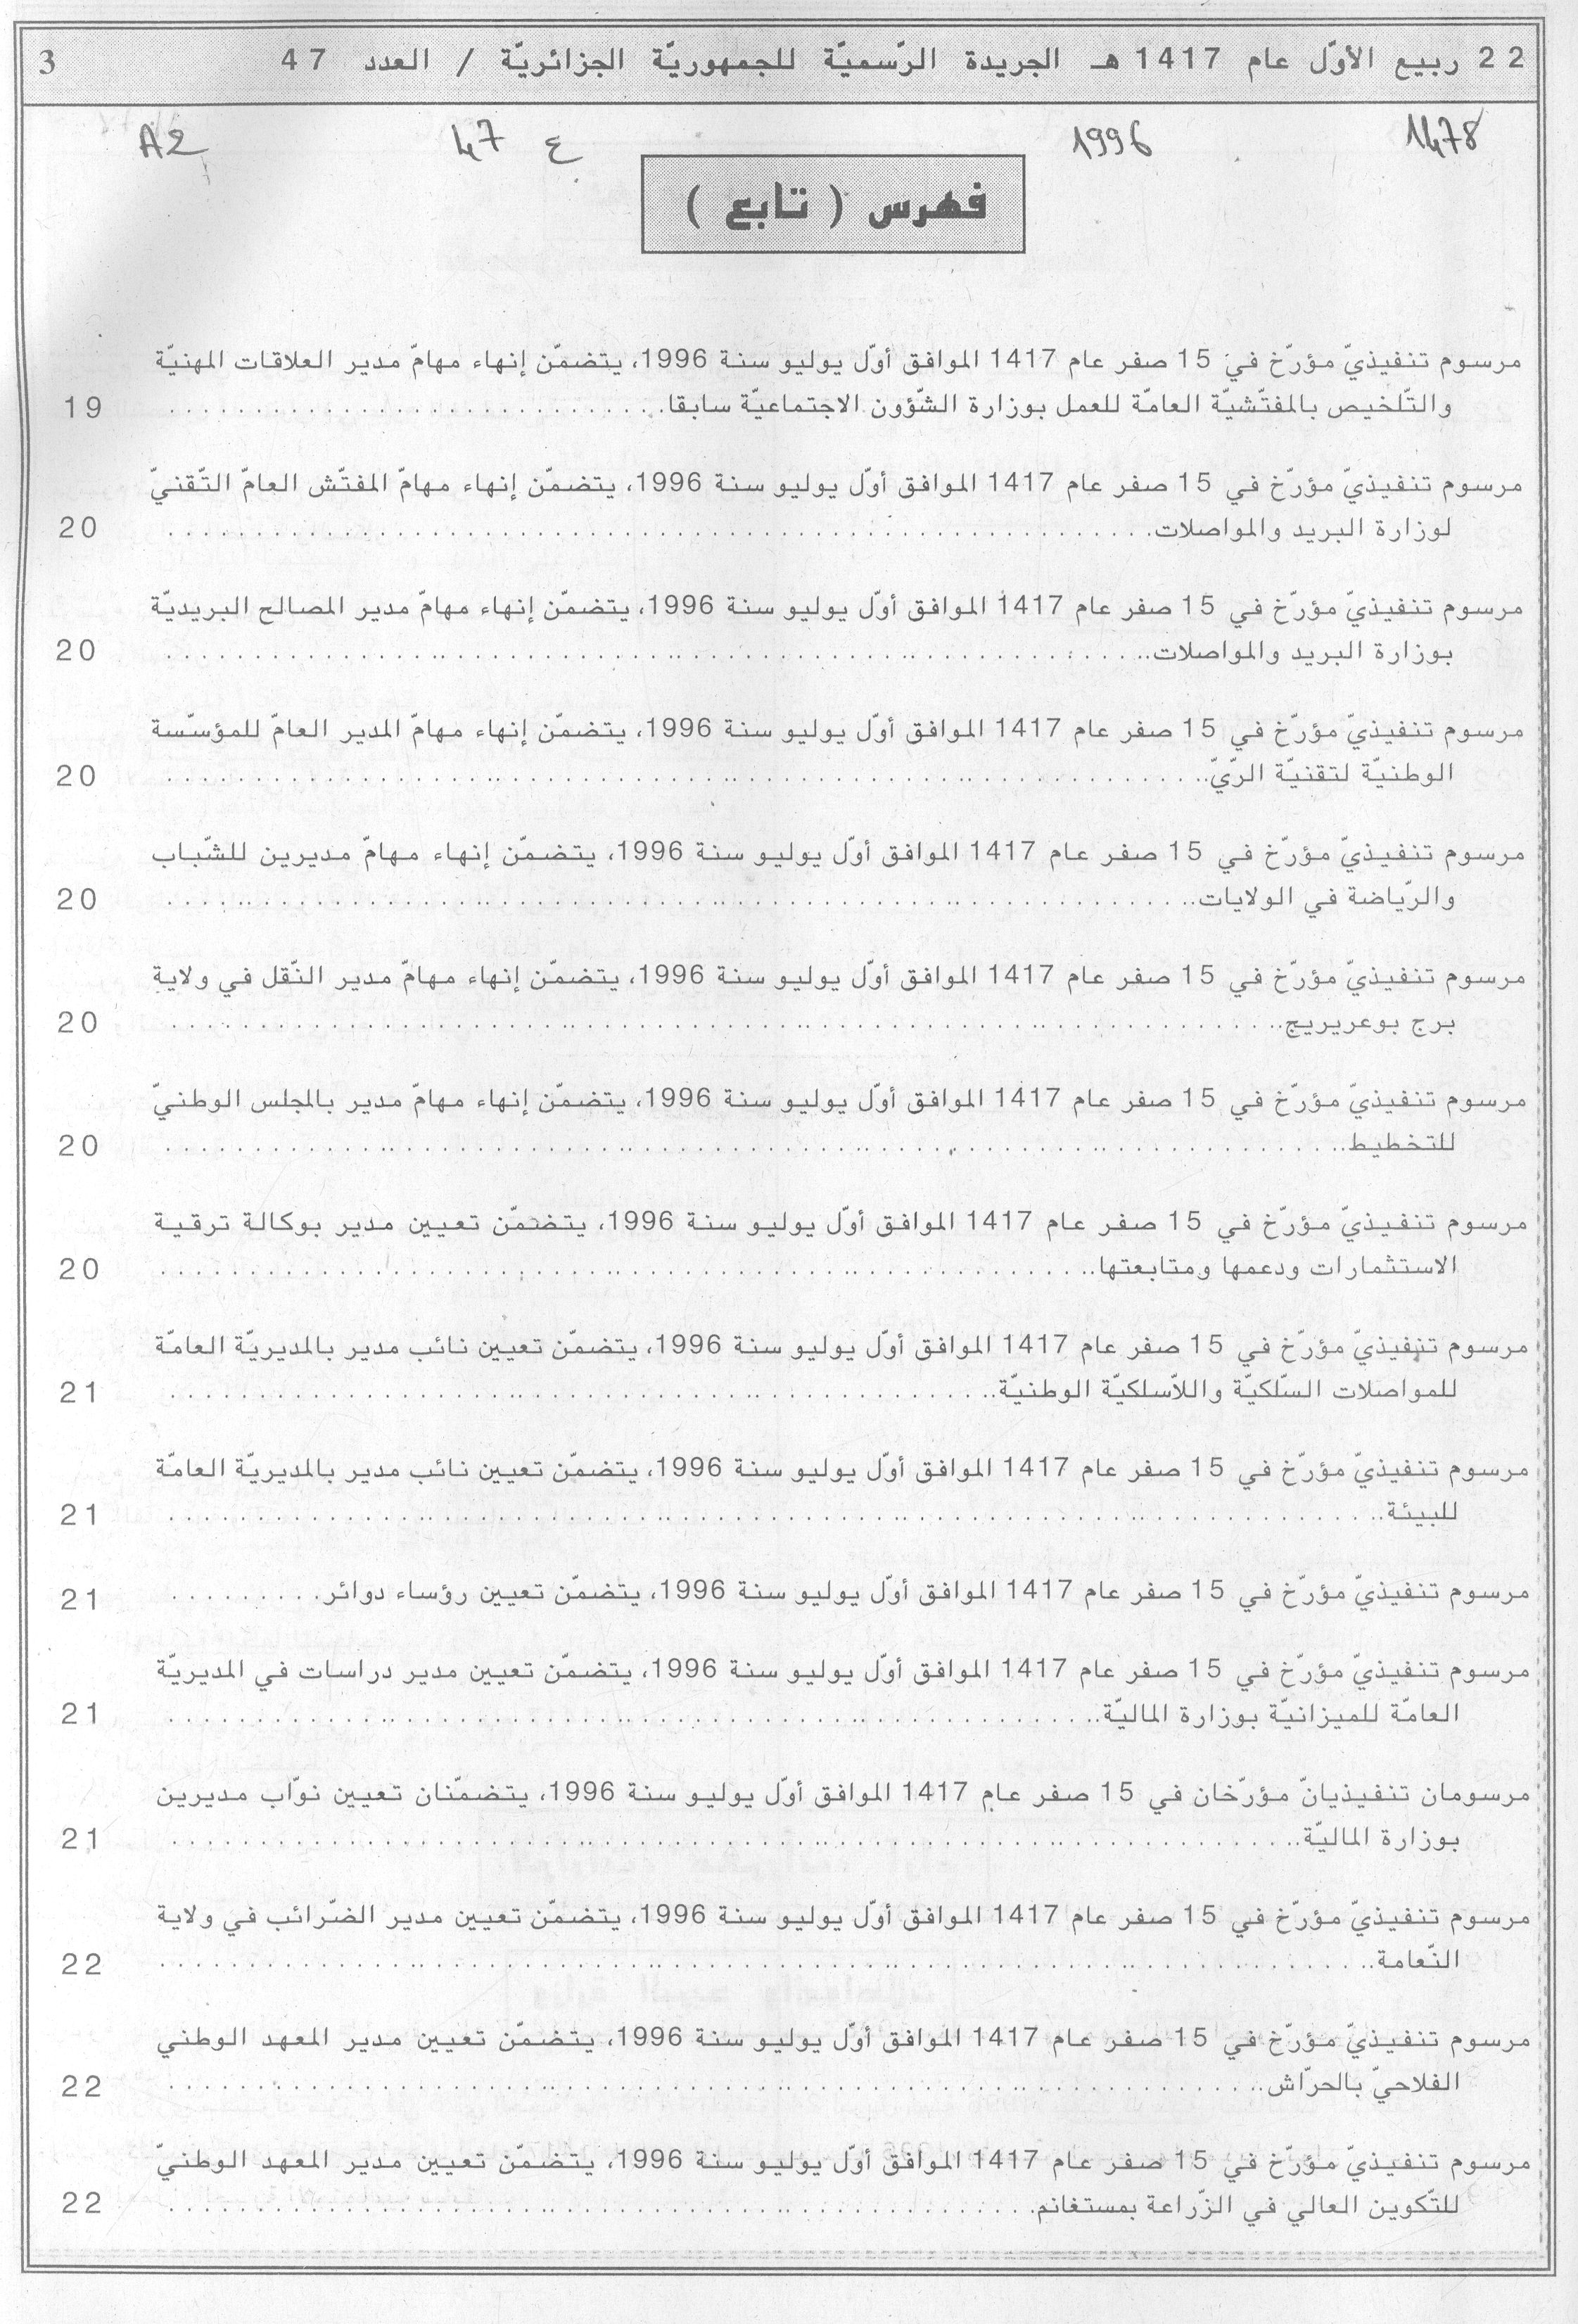 22 ربيع الأوّل عام 1417 هـ الجريدة الرّسميّة للجمهوريّة الجزائريّة / العدد 47 3
1478 1996 ع 47 A2
فهرس ( تابع )
مرسوم تنفيذيّ مؤرّخ في 15 صفر عام 1417 الموافق أوّل يوليو سنة 1996، يتضمّن إنهاء مهامّ مدير العلاقات المهنيّة
والتّلخيص بالمفتّشيّة العامّة للعمل بوزارة الشّؤون الاجتماعيّة سابقا. 19
مرسوم تنفيذيّ مؤرّخ في 15 صفر عام 1417 الموافق أوّل يوليو سنة 1996، يتضمّن إنهاء مهامّ المفتّش العامّ التّقنيّ
لوزارة البريد والمواصلات. 20
مرسوم تنفيذيّ مؤرّخ في 15 صفر عام 1417 الموافق أوّل يوليو سنة 1996، يتضمّن إنهاء مهامّ مدير المصالح البريديّة
بوزارة البريد والمواصلات. 20
مرسوم تنفيذيّ مؤرّخ في 15 صفر عام 1417 الموافق أوّل يوليو سنة 1996، يتضمّن إنهاء مهامّ المدير العامّ للمؤسّسة
الوطنيّة لتقنيّة الرّيّ. 20
مرسوم تنفيذيّ مؤرّخ في 15 صفر عام 1417 الموافق أوّل يوليو سنة 1996، يتضمّن إنهاء مهامّ مديرين للشّباب
والرّياضة في الولايات. 20
مرسوم تنفيذيّ مؤرّخ في 15 صفر عام 1417 الموافق أوّل يوليو سنة 1996، يتضمّن إنهاء مهامّ مدير النّقل في ولاية
برج بوعريريج. 20
مرسوم تنفيذيّ مؤرّخ في 15 صفر عام 1417 الموافق أوّل يوليو سنة 1996، يتضمّن إنهاء مهامّ مدير بالمجلس الوطنيّ
للتخطيط. 20
مرسوم تنفيذيّ مؤرّخ في 15 صفر عام 1417 الموافق أوّل يوليو سنة 1996، يتضمّن تعيين مدير بوكالة ترقية
الاستثمارات ودعمها ومتابعتها. 20
مرسوم تنفيذيّ مؤرّخ في 15 صفر عام 1417 الموافق أوّل يوليو سنة 1996، يتضمّن تعيين نائب مدير بالمديريّة العامّة
للمواصلات السّلكيّة واللاّسلكيّة الوطنيّة. 21
مرسوم تنفيذيّ مؤرّخ في 15 صفر عام 1417 الموافق أوّل يوليو سنة 1996، يتضمّن تعيين نائب مدير بالمديريّة العامّة
للبيئة. 21
مرسوم تنفيذيّ مؤرّخ في 15 صفر عام 1417 الموافق أوّل يوليو سنة 1996، يتضمّن تعيين رؤساء دوائر. 21
مرسوم تنفيذيّ مؤرّخ في 15 صفر عام 1417 الموافق أوّل يوليو سنة 1996، يتضمّن تعيين مدير دراسات في المديريّة
العامّة للميزانيّة بوزارة الماليّة. 21
مرسومان تنفيذيانّ مؤرّخان في 15 صفر عام 1417 الموافق أوّل يوليو سنة 1996، يتضمّنان تعيين نوّاب مديرين
بوزارة الماليّة. 21
مرسوم تنفيذيّ مؤرّخ في 15 صفر عام 1417 الموافق أوّل يوليو سنة 1996، يتضمّن تعيين مدير الضّرائب في ولاية
النّعامة. 22
مرسوم تنفيذيّ مؤرّخ في 15 صفر عام 1417 الموافق أوّل يوليو سنة 1996، يتضمّن تعيين مدير المعهد الوطني
الفلاحيّ بالحرّاش. 22
مرسوم تنفيذيّ مؤرّخ في 15 صفر عام 1417 الموافق أوّل يوليو سنة 1996، يتضمّن تعيين مدير المعهد الوطنيّ
للتّكوين العالي في الزّراعة بمستغانم. 22